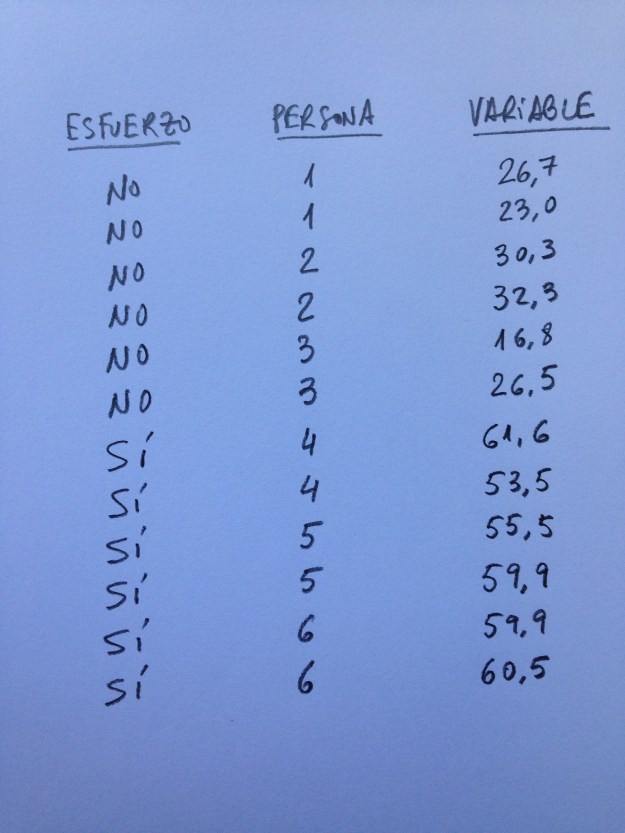 ESFUERZO PERSONA VARIABLE
NO 1 26,7
NO 1 23,0
NO 2 30,3
NO 2 32,3
NO 3 16,8
NO 3 26,5
SÍ 4 61,6
SÍ 4 53,5
SÍ 5 55,5
SÍ 5 59,9
SÍ 6 59,9
SÍ 6 60,5